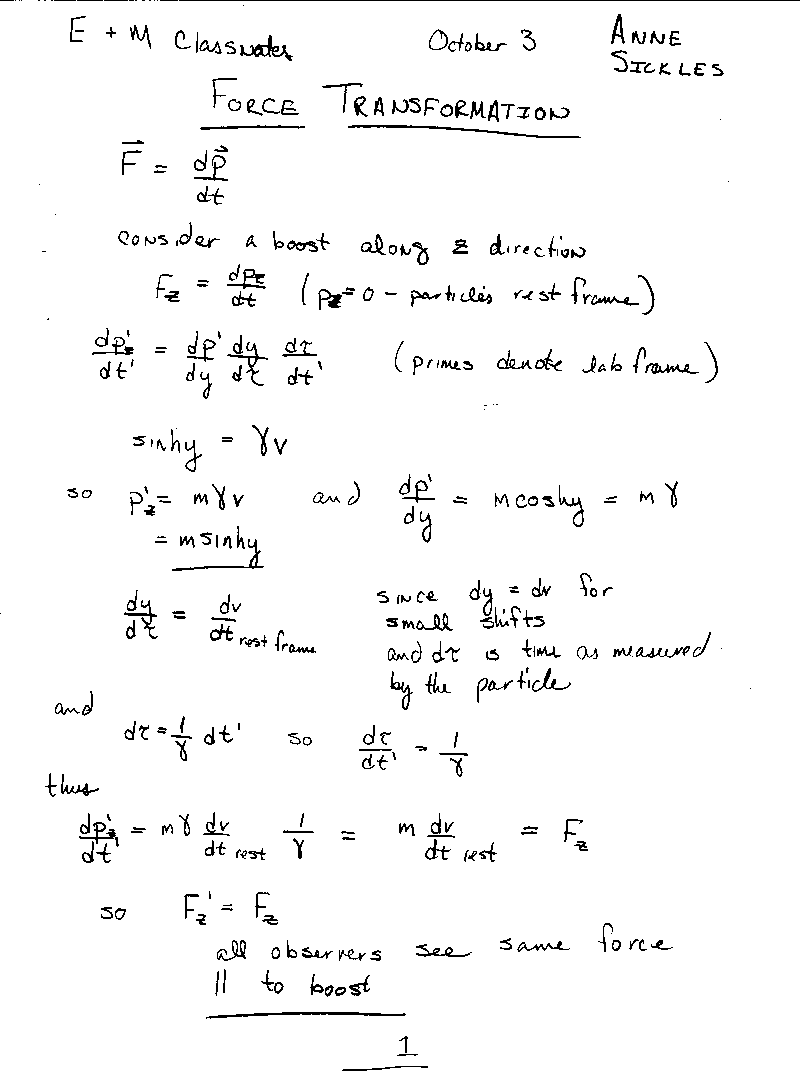 E + M Classnotes October 3 ANNE SICKLES
FORCE TRANSFORMATION
F⃗ = dp⃗/dt
consider a boost along z direction
F_z = dp_z/dt (p_z = 0 - particle's rest frame)
dp'_z/dt' = dp'/dy dy/dτ dτ/dt' (primes denote lab frame)
sinhy = γv
so p'_z = mγv and dp'/dy = m coshy = mγ
= m sinhy
dy/dτ = dv/dt rest frame since dy = dv for
small shifts
and dτ is time as measured
by the particle
and
dτ = 1/γ dt' so dτ/dt' = 1/γ
thus
dp'_z/dt' = mγ dv/dt rest 1/γ = m dv/dt rest = F_z
so F_z' = F_z
all observers see same force
|| to boost
1